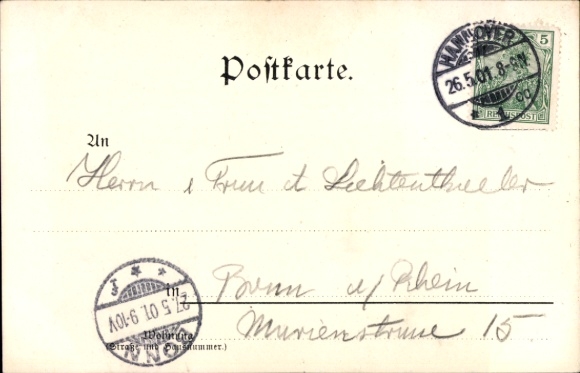 HANNOVER
26.5.01. 8-9N.
* 1 oo
5
REICHSPOST
Postkarte.
An
Herrn & Frau A Lichtentheeler
in Bonn a/ Rhein
Marienstrasse 15.
Wohnung
(Straße und Hausnummer.)
BONN
27.5.01. 9-10V